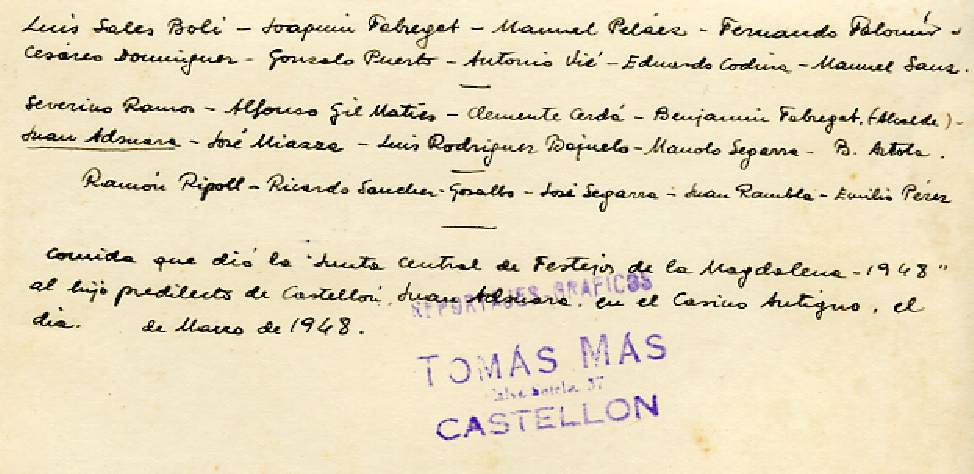 Luis Sales Boli - Joaquin Fabregat - Manuel Peláez - Fernando Palomir -
Cesáreo Dominguez - Gonzalo Puerto - Antonio Vié - Eduardo Codina - Manuel Sanz.
Severino Ramos - Alfonso Gil Matíes - Clemente Cerdá - Benjamin Fabregat. (Alcalde) -
Juan Adsuara - José Miazza - Luis Rodriguez Bajuelo - Manolo Segarra - B. Artola.
Ramón Ripoll - Ricardo Sanchez-Gozalbo - José Segarra - Juan Rambla - Emilio Pérez
Comida que dió la "Junta Central de Festejos de la Magdalena - 1948"
al hijo predilecto de Castellón, Juan Adsuara, en el Casino Antiguo, el
dia. de Marzo de 1948.
REPORTAJES GRÁFICOS
TOMÁS MÁS
37
CASTELLON